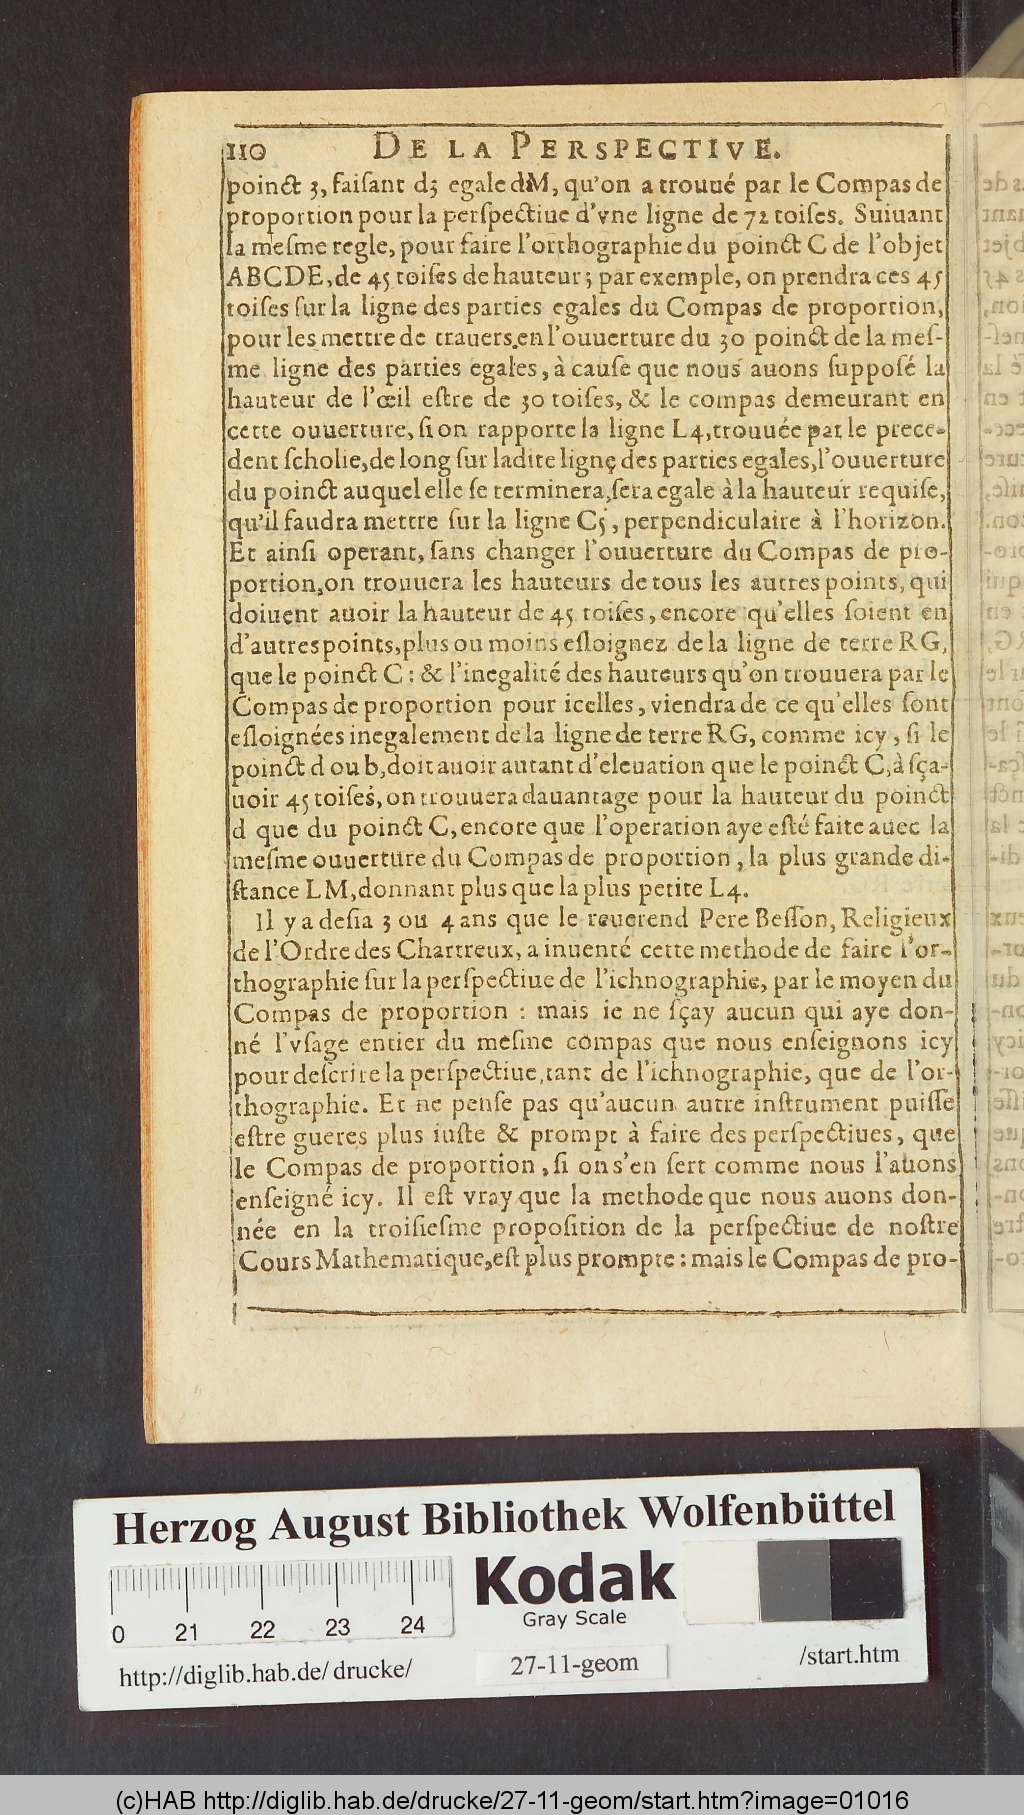 110 DE LA PERSPECTIVE.
poinct 3, faiſant d3 egale dM, qu'on a trouué par le Compas de
proportion pour la perſpectiue d'vne ligne de 72 toiſes. Suiuant
la meſme regle, pour faire l'orthographie du poinct C de l'objet
ABCDE, de 45 toiſes de hauteur; par exemple, on prendra ces 45
toiſes ſur la ligne des parties egales du Compas de proportion,
pour les mettre de trauers en l'ouuerture du 30 poinct de la meſ-
me ligne des parties egales, à cauſe que nous auons ſuppoſé la
hauteur de l'œil eſtre de 30 toiſes, & le compas demeurant en
cette ouuerture, ſi on rapporte la ligne L4, trouuée par le prece-
dent ſcholie, de long ſur ladite ligne des parties egales, l'ouuerture
du poinct auquel elle ſe terminera, ſera egale à la hauteur requiſe,
qu'il faudra mettre ſur la ligne C5, perpendiculaire à l'horizon.
Et ainſi operant, ſans changer l'ouuerture du Compas de pro-
portion, on trouuera les hauteurs de tous les autres points, qui
doiuent auoir la hauteur de 45 toiſes, encore qu'elles ſoient en
d'autres points, plus ou moins eſloignez de la ligne de terre RG,
que le poinct C : & l'inegalité des hauteurs qu'on trouuera par le
Compas de proportion pour icelles, viendra de ce qu'elles ſont
eſloignées inegalement de la ligne de terre RG, comme icy, ſi le
poinct d ou b, doit auoir autant d'eleuation que le poinct C, à ſça-
uoir 45 toiſes, on trouuera dauantage pour la hauteur du poinct
d que du poinct C, encore que l'operation aye eſté faite auec la
meſme ouuerture du Compas de proportion, la plus grande di-
ſtance LM, donnant plus que la plus petite L4.
Il y a deſia 3 ou 4 ans que le reuerend Pere Beſſon, Religieux
de l'Ordre des Chartreux, a inuenté cette methode de faire l'or-
thographie ſur la perſpectiue de l'ichnographie, par le moyen du
Compas de proportion : mais ie ne ſçay aucun qui aye don-
né l'vſage entier du meſme compas que nous enſeignons icy
pour deſcrire la perſpectiue, tant de l'ichnographie, que de l'or-
thographie. Et ne penſe pas qu'aucun autre inſtrument puiſſe
eſtre gueres plus iuſte & prompt à faire des perſpectiues, que
le Compas de proportion, ſi on s'en ſert comme nous l'auons
enſeigné icy. Il eſt vray que la methode que nous auons don-
née en la troiſieſme propoſition de la perſpectiue de noſtre
Cours Mathematique, eſt plus prompte : mais le Compas de pro-
Herzog August Bibliothek Wolfenbüttel
Kodak
Gray Scale
0 21 22 23 24
http://diglib.hab.de/drucke/ 27-11-geom /start.htm
(c)HAB http://diglib.hab.de/drucke/27-11-geom/start.htm?image=01016